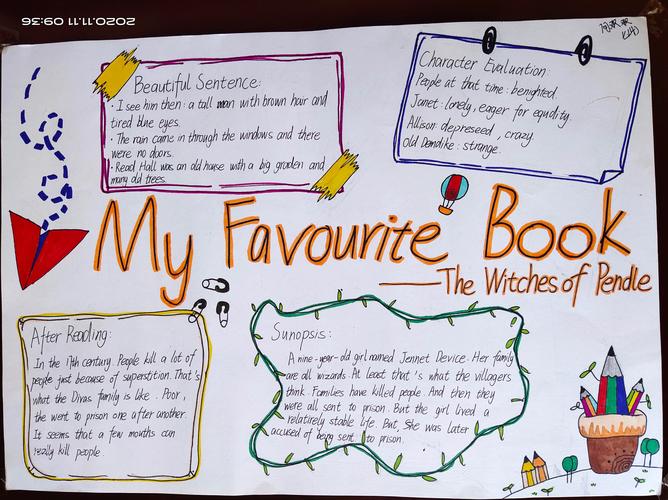 2020.11.11 09:36
Beautiful Sentence:
· I see him then: a tall man with brown hair and
tired blue eyes.
· The rain came in through the windows and there
were no doors.
· Read Hall was an old hause with a big graden and
many old trees.
Character Evaluation:
People at that time: benighted.
Janet: lonely, eager for equidity.
Allison: depreseed, crazy.
Old Demdike: strange.
My Favourite Book
——The Witches of Pendle
After Reading:
In the 17th century People kill a lot of
people just because of superstition. That's
what the Divas family is like. Poor,
the went to prison one after another.
It seems that a few mouths can
really kill people
Sunopsis:
A nine-year-old girl named Jennet Device. Her family
are all wizards. At least that's what the villagers
think. Families have killed people. And then they
were all sent to prison. But the girl lived a
relatirely stable life. But, She was later
accused of being sent to prison.